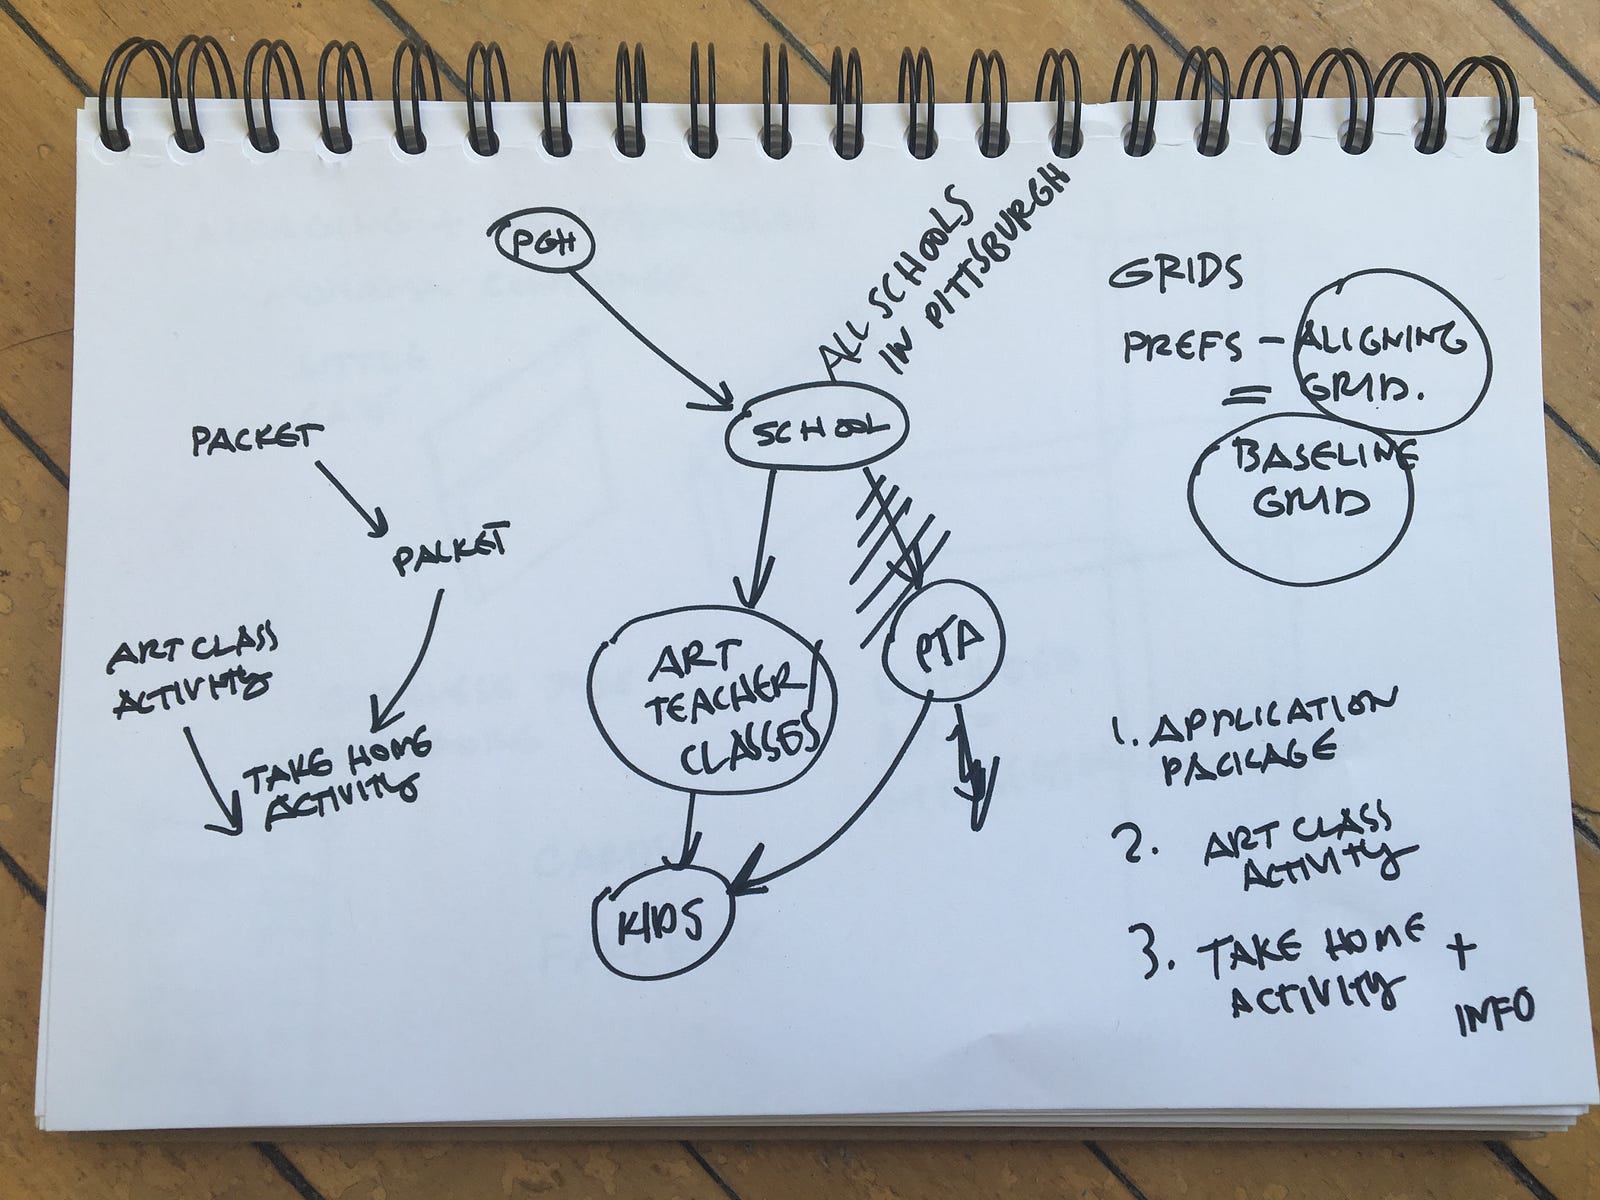 PGH
ALL SCHOOLS
IN PITTSBURGH
SCHOOL
ART
TEACHER
CLASSES
PTA
KIDS
PACKET
PACKET
ART CLASS
ACTIVITY
TAKE HOME
ACTIVITY
GRIDS
PREFS - ALIGNING
= GRID.
BASELINE
GRID
1. APPLICATION
PACKAGE
2. ART CLASS
ACTIVITY
3. TAKE HOME +
ACTIVITY
INFO